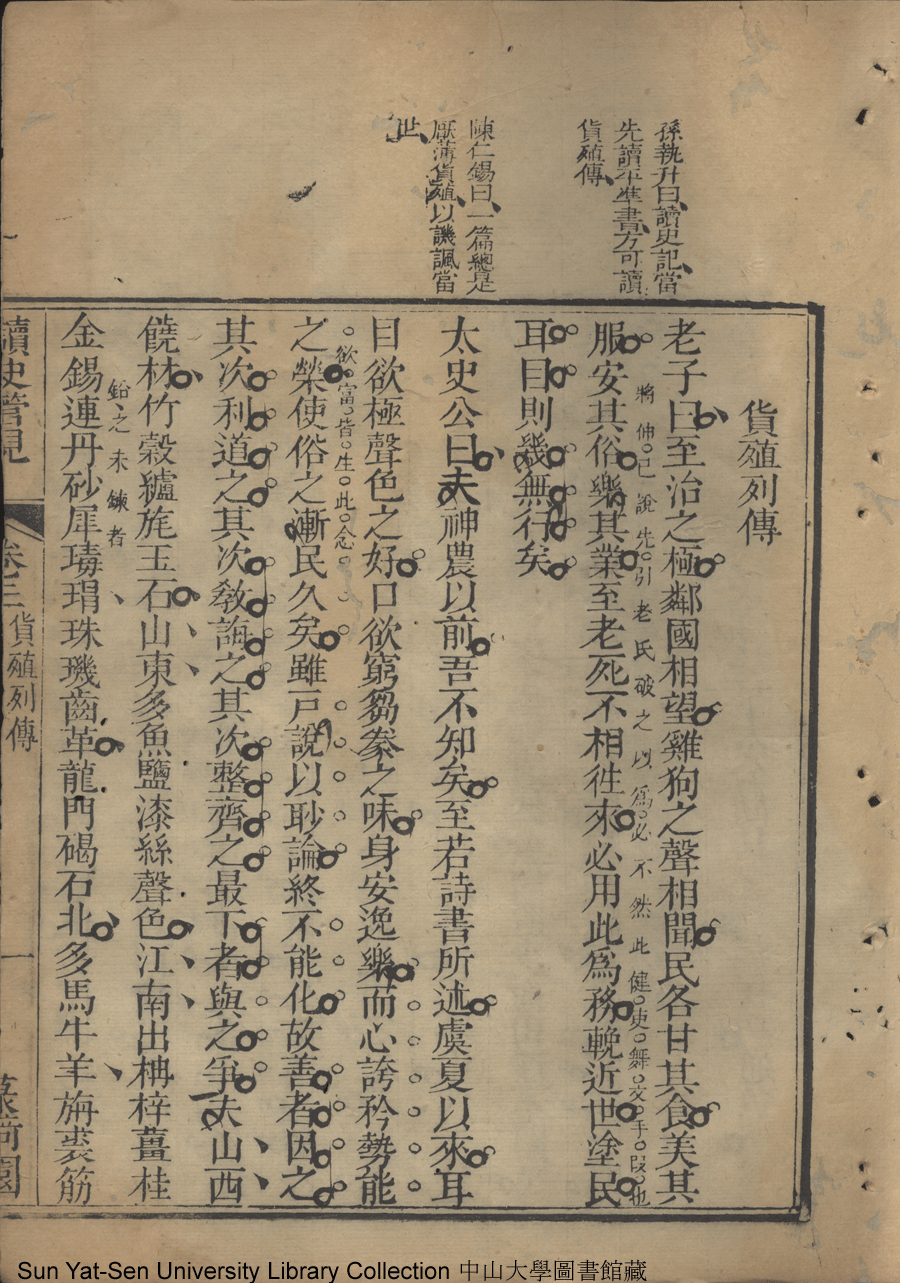 孫執升曰讀史記當
先讀平準書方可讀
貨殖傳
陳仁錫曰一篇總是
厭薄貨殖以譏諷當
世
貨殖列傳
老子曰至治之極鄰國相望雞狗之聲相聞民各甘其食美其
將伸己說先引老氏破之以爲必不然此健吏舞文手段也
服安其俗樂其業至老死不相徃來必用此爲務輓近世塗民
耳目則幾無行矣
太史公曰夫神農以前吾不知矣至若詩書所述虞夏以來耳
目欲極聲色之好口欲窮芻豢之味身安逸樂而心誇矜勢能
欲富皆生此念
之榮使俗之漸民久矣雖戶說以眇論終不能化故善者因之
其次利道之其次敎誨之其次整齊之最下者與之爭夫山西
饒材竹榖纑旄玉石山東多魚鹽漆絲聲色江南出柟梓薑桂
鉛之未鍊者
金錫連丹砂犀瑇瑁珠璣齒革龍門碣石北多馬牛羊旃裘筋
讀史管見
卷三
貨殖列傳
一
園
Sun Yat-Sen University Library Collection 中山大學圖書館藏